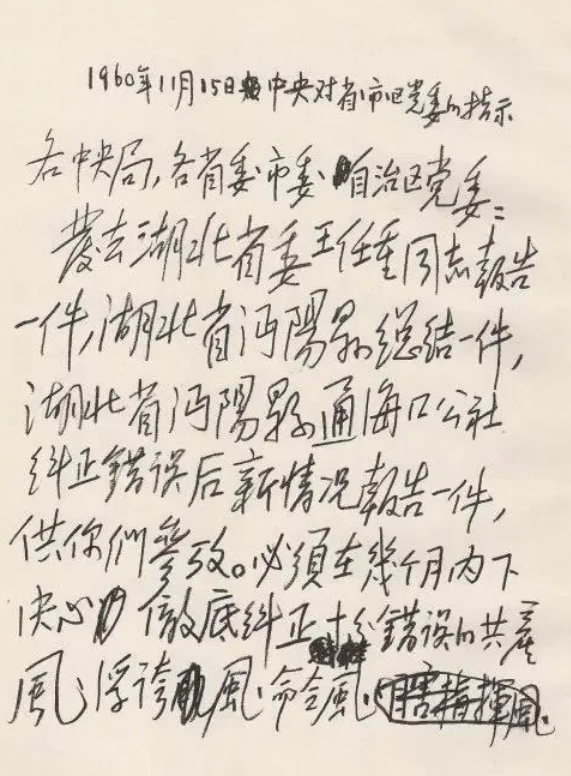 1960年11月15日中央对省市区党委的指示
各中央局,各省委、市委、自治区党委:
發去湖北省委王任重同志報告
一件,湖北省沔陽县总结一件,
湖北省沔陽县通海口公社
纠正错误后新情况報告一件,
供你们參攷。必须在幾个月内下
决心徹底纠正十分错误的共產
風、浮誇風、命令風、瞎指揮風、